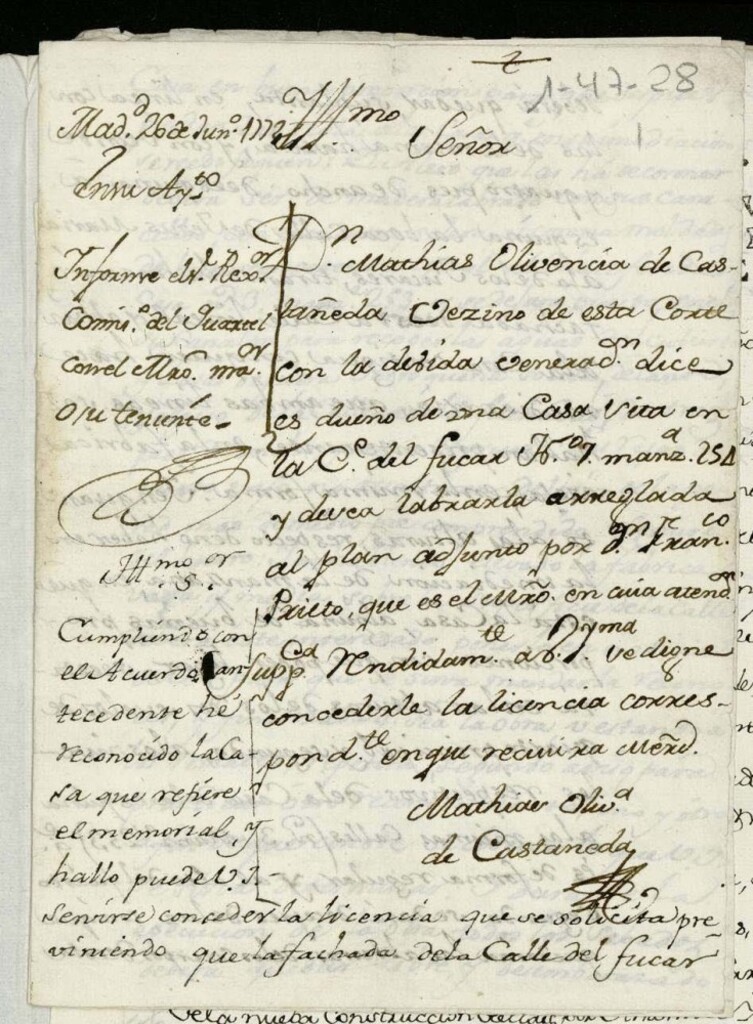 1-47-28
1
Yllmo
Señor
Madd. 26 de Junº. 1772
En su Aytto
Informe el Sr. Rexor.
Comisº. del Quartel
con el Mro. mor.
o su teniente.
Dn. Mathias Olivencia de Cas-
tañeda Vezino de esta Corte
con la devida veneradon. dice
es dueño de una Casa sita en
la Ce. del fucar No. 7. manza. 254
y desea labrarla arreglada
al plan adjunto por Dn. Franco
Prieto, que es el Mro. en cuia atenon.
Suppca Rendidamte. a V. S. Yma se digne
concederle la licencia corres-
pondte. en que recivira Merd.
Mathias Oliva
de Castaneda
Illmo Sor.
Cumpliendo con
el Acuerdo an-
tecedente hé
reconocido la Ca-
sa que refiere
el memorial, y
hallo puede V. I.
Servirse conceder la licencia que se solicita pre-
viniendo que la fachada de la Calle del fucar
de la nueva Construccion